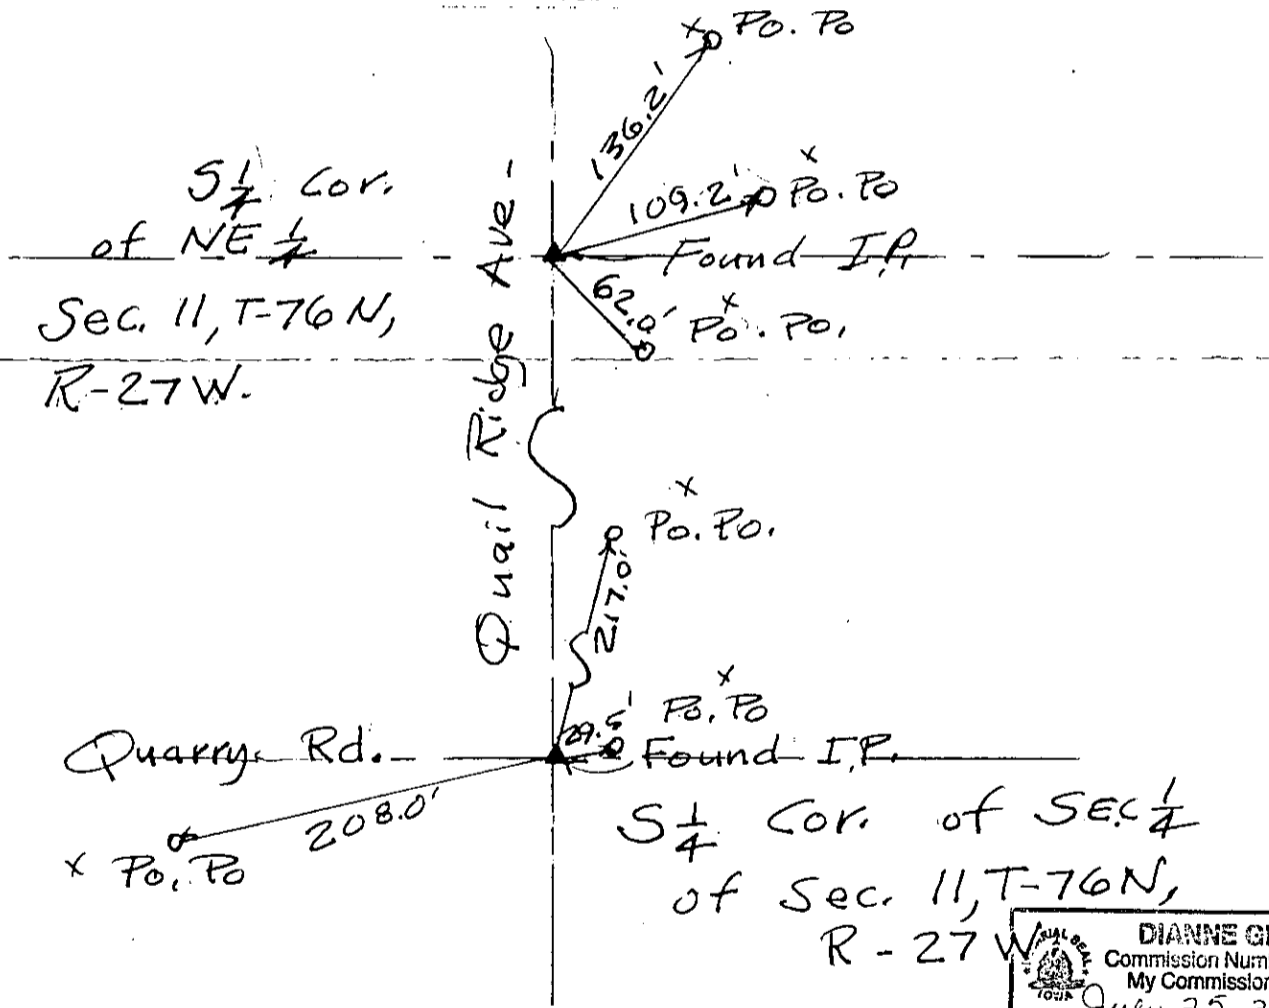 x Po. Po
136.2'
S 1/4 Cor.
of NE 1/4
Sec. 11, T-76 N,
R-27 W.
109.2'
x
Po. Po
Found I.P.
62.0'
x
Po. Po.
Quail Ridge Ave.
x
Po. Po.
217.0'
x
Po. Po
29.5'
Quarry Rd.
Found I.P.
208.0'
x Po. Po
S 1/4 Cor. of SEC 1/4
of Sec. 11, T-76N,
R-27 W
DIANNE
Commission Num
My Commission